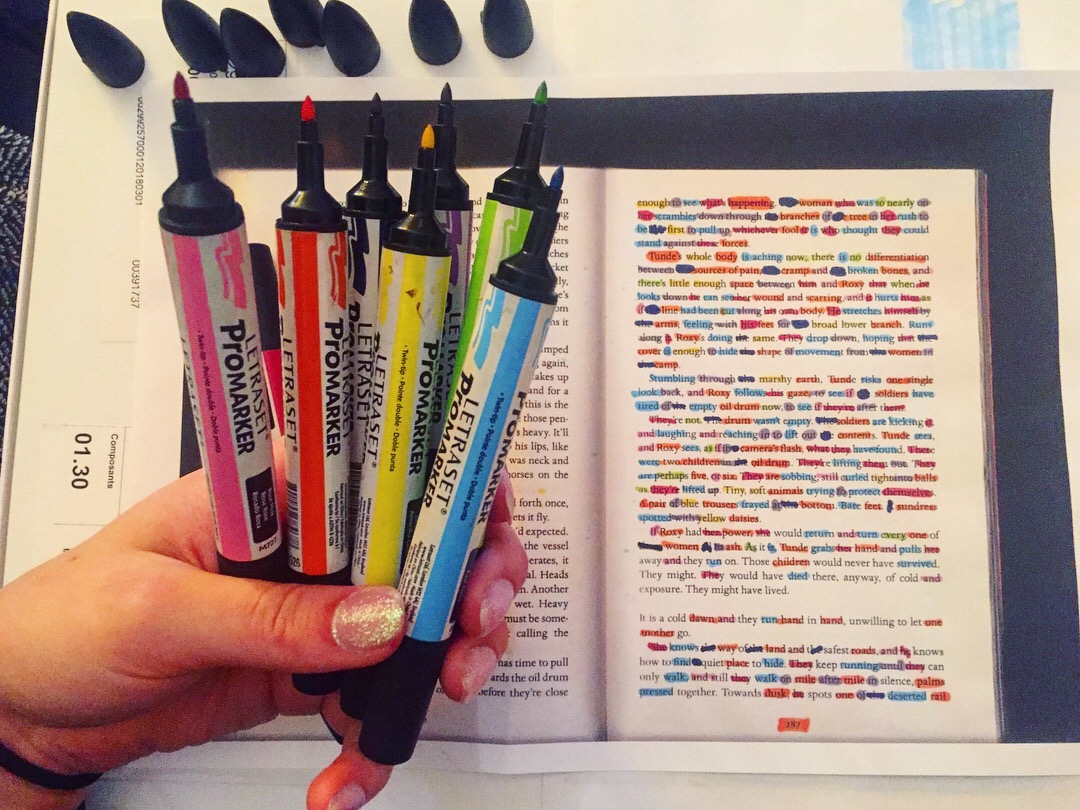 0029925700012018030​1
00391737
Composants
01.30
LETRASET
PROMARKER
• Twin-tip • Pointe double • Doble punta
M727
LETRASET
PROMARKER
LETRASET
PROMARKER
LETRASET
PROMARKER
• Twin-tip • Pointe double • Doble punta
LETRASET
PROMARKER
• Twin-tip • Pointe double • Doble punta
PROMARKER
again,
akes up
and for a
this is the
those pen-
s heavy. It'll
his lips, like
was neck and
horses on the
forth once,
ets it fly.
'd expected.
the vessel
erates, it
al. Heads
n. Another
wet. Heavy
must be some-
calling the
has time to pull
ards the oil drum
before they're close
enough to see what's happening. woman who was so nearly on
her scrambles down through branches of tree in her rush to
be first to pull up whichever fool it is who thought they could
stand against these forces.
Tunde's whole body is aching now, there is no differentiation
between sources of pain, cramp and broken bones, and
there's little enough space between him and Roxy that when he
looks down he can see her wound and scarring, and it hurts him as
if line had been cut along his own body. He stretches himself by
the arms, feeling with his feet for broad lower branch. Runs
along it. Roxy's doing the same. They drop down, hoping that the
cover is enough to hide the shape of movement from the women in
the camp.
Stumbling through the marshy earth, Tunde risks one single
look back, and Roxy follows his gaze, to see if soldiers have
tired of the empty oil drum now, to see if they're after them.
They're not. The drum wasn't empty. The soldiers are kicking it,
and laughing and reaching in to lift out contents. Tunde sees,
and Roxy sees, as if in camera's flash, what they have found. There
were two children in the oil drum. They're lifting them out. They
are perhaps five, or six. They are sobbing, still curled tight into balls
as they're lifted up. Tiny, soft animals trying to protect themselves.
A pair of blue trousers frayed at the bottom. Bare feet. sundress
spotted with yellow daisies.
If Roxy had her power, she would return and turn every one of
women to ash. As it is, Tunde grabs her hand and pulls her
away and they run on. Those children would never have survived.
They might. They would have died there, anyway, of cold and
exposure. They might have lived.
It is a cold dawn and they run hand in hand, unwilling to let one
mother go.
She knows the way of the land and the safest roads, and he knows
how to find quiet place to hide. They keep running until they can
only walk, and still they walk on mile after mile in silence, palms
pressed together. Towards dusk, he spots one of the deserted rail
287